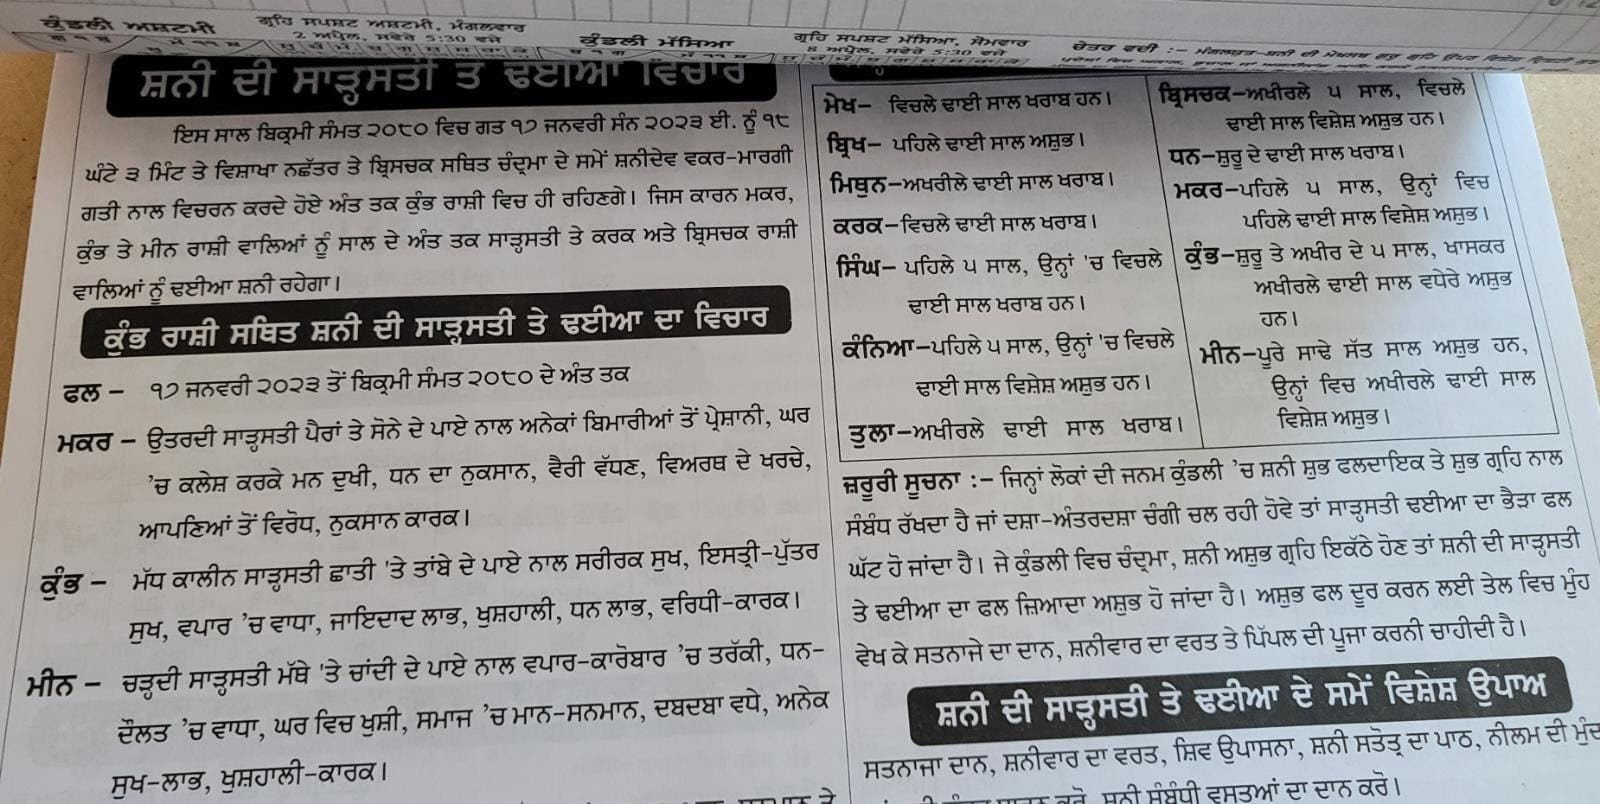 ਕੁੰਡਲੀ ਅਸ਼ਟਮੀ
ਗ੍ਰਹਿ ਸਪਸ਼ਟ ਅਸ਼ਟਮੀ, ਮੰਗਲਵਾਰ
2 ਅਪ੍ਰੈਲ, ਸਵੇਰੇ 5:30 ਵਜੇ
ਕੁੰਡਲੀ ਮੱਸਿਆ
ਗ੍ਰਹਿ ਸਪਸ਼ਟ ਮੱਸਿਆ, ਸੋਮਵਾਰ
8 ਅਪ੍ਰੈਲ, ਸਵੇਰੇ 5:30 ਵਜੇ
ਚੇਤਰ ਵਦੀ :-
ਸ਼ਨੀ ਦੀ ਸਾੜ੍ਹਸਤੀ ਤੇ ਢਈਆ ਵਿਚਾਰ
ਇਸ ਸਾਲ ਬਿਕ੍ਰਮੀ ਸੰਮਤ ੨੦੮੦ ਵਿਚ ਗਤ ੧੭ ਜਨਵਰੀ ਸੰਨ ੨੦੨੩ ਈ. ਨੂੰ ੧੮
ਘੰਟੇ ੩ ਮਿੰਟ ਤੇ ਵਿਸ਼ਾਖਾ ਨਛੱਤਰ ਤੇ ਬ੍ਰਿਸਚਕ ਸਥਿਤ ਚੰਦ੍ਰਮਾ ਦੇ ਸਮੇਂ ਸ਼ਨੀਦੇਵ ਵਕਰ-ਮਾਰਗੀ
ਗਤੀ ਨਾਲ ਵਿਚਰਨ ਕਰਦੇ ਹੋਏ ਅੰਤ ਤਕ ਕੁੰਭ ਰਾਸ਼ੀ ਵਿਚ ਹੀ ਰਹਿਣਗੇ। ਜਿਸ ਕਾਰਨ ਮਕਰ,
ਕੁੰਭ ਤੇ ਮੀਨ ਰਾਸ਼ੀ ਵਾਲਿਆਂ ਨੂੰ ਸਾਲ ਦੇ ਅੰਤ ਤਕ ਸਾੜ੍ਹਸਤੀ ਤੇ ਕਰਕ ਅਤੇ ਬ੍ਰਿਸਚਕ ਰਾਸ਼ੀ
ਵਾਲਿਆਂ ਨੂੰ ਢਈਆ ਸ਼ਨੀ ਰਹੇਗਾ।
ਕੁੰਭ ਰਾਸ਼ੀ ਸਥਿਤ ਸ਼ਨੀ ਦੀ ਸਾੜ੍ਹਸਤੀ ਤੇ ਢਈਆ ਦਾ ਵਿਚਾਰ
ਫਲ – ੧੭ ਜਨਵਰੀ ੨੦੨੩ ਤੋਂ ਬਿਕ੍ਰਮੀ ਸੰਮਤ ੨੦੮੦ ਦੇ ਅੰਤ ਤਕ
ਮਕਰ – ਉਤਰਦੀ ਸਾੜ੍ਹਸਤੀ ਪੈਰਾਂ ਤੇ ਸੋਨੇ ਦੇ ਪਾਏ ਨਾਲ ਅਨੇਕਾਂ ਬਿਮਾਰੀਆਂ ਤੋਂ ਪ੍ਰੇਸ਼ਾਨੀ, ਘਰ
'ਚ ਕਲੇਸ਼ ਕਰਕੇ ਮਨ ਦੁਖੀ, ਧਨ ਦਾ ਨੁਕਸਾਨ, ਵੈਰੀ ਵੱਧਣ, ਵਿਅਰਥ ਦੇ ਖਰਚੇ,
ਆਪਣਿਆਂ ਤੋਂ ਵਿਰੋਧ, ਨੁਕਸਾਨ ਕਾਰਕ।
ਕੁੰਭ – ਮੱਧ ਕਾਲੀਨ ਸਾੜ੍ਹਸਤੀ ਛਾਤੀ 'ਤੇ ਤਾਂਬੇ ਦੇ ਪਾਏ ਨਾਲ ਸਰੀਰਕ ਸੁਖ, ਇਸਤ੍ਰੀ-ਪੁੱਤਰ
ਸੁਖ, ਵਪਾਰ 'ਚ ਵਾਧਾ, ਜਾਇਦਾਦ ਲਾਭ, ਖੁਸ਼ਹਾਲੀ, ਧਨ ਲਾਭ, ਵਰਿਧੀ-ਕਾਰਕ।
ਮੀਨ – ਚੜ੍ਹਦੀ ਸਾੜ੍ਹਸਤੀ ਮੱਥੇ 'ਤੇ ਚਾਂਦੀ ਦੇ ਪਾਏ ਨਾਲ ਵਪਾਰ-ਕਾਰੋਬਾਰ 'ਚ ਤਰੱਕੀ, ਧਨ-
ਦੌਲਤ 'ਚ ਵਾਧਾ, ਘਰ ਵਿਚ ਖੁਸ਼ੀ, ਸਮਾਜ 'ਚ ਮਾਨ-ਸਨਮਾਨ, ਦਬਦਬਾ ਵਧੇ, ਅਨੇਕ
ਸੁਖ-ਲਾਭ, ਖੁਸ਼ਹਾਲੀ-ਕਾਰਕ।
ਮੇਖ– ਵਿਚਲੇ ਢਾਈ ਸਾਲ ਖਰਾਬ ਹਨ।
ਬ੍ਰਿਖ– ਪਹਿਲੇ ਢਾਈ ਸਾਲ ਅਸ਼ੁਭ।
ਮਿਥੁਨ–ਅਖਰੀਲੇ ਢਾਈ ਸਾਲ ਖਰਾਬ।
ਕਰਕ–ਵਿਚਲੇ ਢਾਈ ਸਾਲ ਖਰਾਬ।
ਸਿੰਘ– ਪਹਿਲੇ ੫ ਸਾਲ, ਉਨ੍ਹਾਂ 'ਚ ਵਿਚਲੇ
ਢਾਈ ਸਾਲ ਖਰਾਬ ਹਨ।
ਕੰਨਿਆ–ਪਹਿਲੇ ੫ ਸਾਲ, ਉਨ੍ਹਾਂ 'ਚ ਵਿਚਲੇ
ਢਾਈ ਸਾਲ ਵਿਸ਼ੇਸ਼ ਅਸ਼ੁਭ ਹਨ।
ਤੁਲਾ–ਅਖੀਰਲੇ ਢਾਈ ਸਾਲ ਖਰਾਬ।
ਬ੍ਰਿਸਚਕ–ਅਖੀਰਲੇ ੫ ਸਾਲ, ਵਿਚਲੇ
ਢਾਈ ਸਾਲ ਵਿਸ਼ੇਸ਼ ਅਸ਼ੁਭ ਹਨ।
ਧਨ–ਸ਼ੁਰੂ ਦੇ ਢਾਈ ਸਾਲ ਖਰਾਬ।
ਮਕਰ–ਪਹਿਲੇ ੫ ਸਾਲ, ਉਨ੍ਹਾਂ ਵਿਚ
ਪਹਿਲੇ ਢਾਈ ਸਾਲ ਵਿਸ਼ੇਸ਼ ਅਸ਼ੁਭ।
ਕੁੰਭ–ਸ਼ੁਰੂ ਤੇ ਅਖੀਰ ਦੇ ੫ ਸਾਲ, ਖਾਸਕਰ
ਅਖੀਰਲੇ ਢਾਈ ਸਾਲ ਵਧੇਰੇ ਅਸ਼ੁਭ
ਹਨ।
ਮੀਨ–ਪੂਰੇ ਸਾਢੇ ਸੱਤ ਸਾਲ ਅਸ਼ੁਭ ਹਨ,
ਉਨ੍ਹਾਂ ਵਿਚ ਅਖੀਰਲੇ ਢਾਈ ਸਾਲ
ਵਿਸ਼ੇਸ਼ ਅਸ਼ੁਭ।
ਜ਼ਰੂਰੀ ਸੂਚਨਾ :– ਜਿਨ੍ਹਾਂ ਲੋਕਾਂ ਦੀ ਜਨਮ ਕੁੰਡਲੀ 'ਚ ਸ਼ਨੀ ਸ਼ੁਭ ਫਲਦਾਇਕ ਤੇ ਸ਼ੁਭ ਗ੍ਰਹਿ ਨਾਲ
ਸੰਬੰਧ ਰੱਖਦਾ ਹੈ ਜਾਂ ਦਸ਼ਾ-ਅੰਤਰਦਸ਼ਾ ਚੰਗੀ ਚਲ ਰਹੀ ਹੋਵੇ ਤਾਂ ਸਾੜ੍ਹਸਤੀ ਢਈਆ ਦਾ ਭੈੜਾ ਫਲ
ਘੱਟ ਹੋ ਜਾਂਦਾ ਹੈ। ਜੇ ਕੁੰਡਲੀ ਵਿਚ ਚੰਦ੍ਰਮਾ, ਸ਼ਨੀ ਅਸ਼ੁਭ ਗ੍ਰਹਿ ਇਕੱਠੇ ਹੋਣ ਤਾਂ ਸ਼ਨੀ ਦੀ ਸਾੜ੍ਹਸਤੀ
ਤੇ ਢਈਆ ਦਾ ਫਲ ਜ਼ਿਆਦਾ ਅਸ਼ੁਭ ਹੋ ਜਾਂਦਾ ਹੈ। ਅਸ਼ੁਭ ਫਲ ਦੂਰ ਕਰਨ ਲਈ ਤੇਲ ਵਿਚ ਮੂੰਹ
ਵੇਖ ਕੇ ਸਤਨਾਜੇ ਦਾ ਦਾਨ, ਸ਼ਨੀਵਾਰ ਦਾ ਵਰਤ ਤੇ ਪਿੱਪਲ ਦੀ ਪੂਜਾ ਕਰਨੀ ਚਾਹੀਦੀ ਹੈ।
ਸ਼ਨੀ ਦੀ ਸਾੜ੍ਹਸਤੀ ਤੇ ਢਈਆ ਦੇ ਸਮੇਂ ਵਿਸ਼ੇਸ਼ ਉਪਾਅ
ਸਤਨਾਜਾ ਦਾਨ, ਸ਼ਨੀਵਾਰ ਦਾ ਵਰਤ, ਸ਼ਿਵ ਉਪਾਸਨਾ, ਸ਼ਨੀ ਸਤੋਤ੍ਰ ਦਾ ਪਾਠ, ਨੀਲਮ ਦੀ
ਕਰੋ, ਸ਼ਨੀ ਸੰਬੰਧੀ ਵਸਤੂਆਂ ਦਾ ਦਾਨ ਕਰੋ।